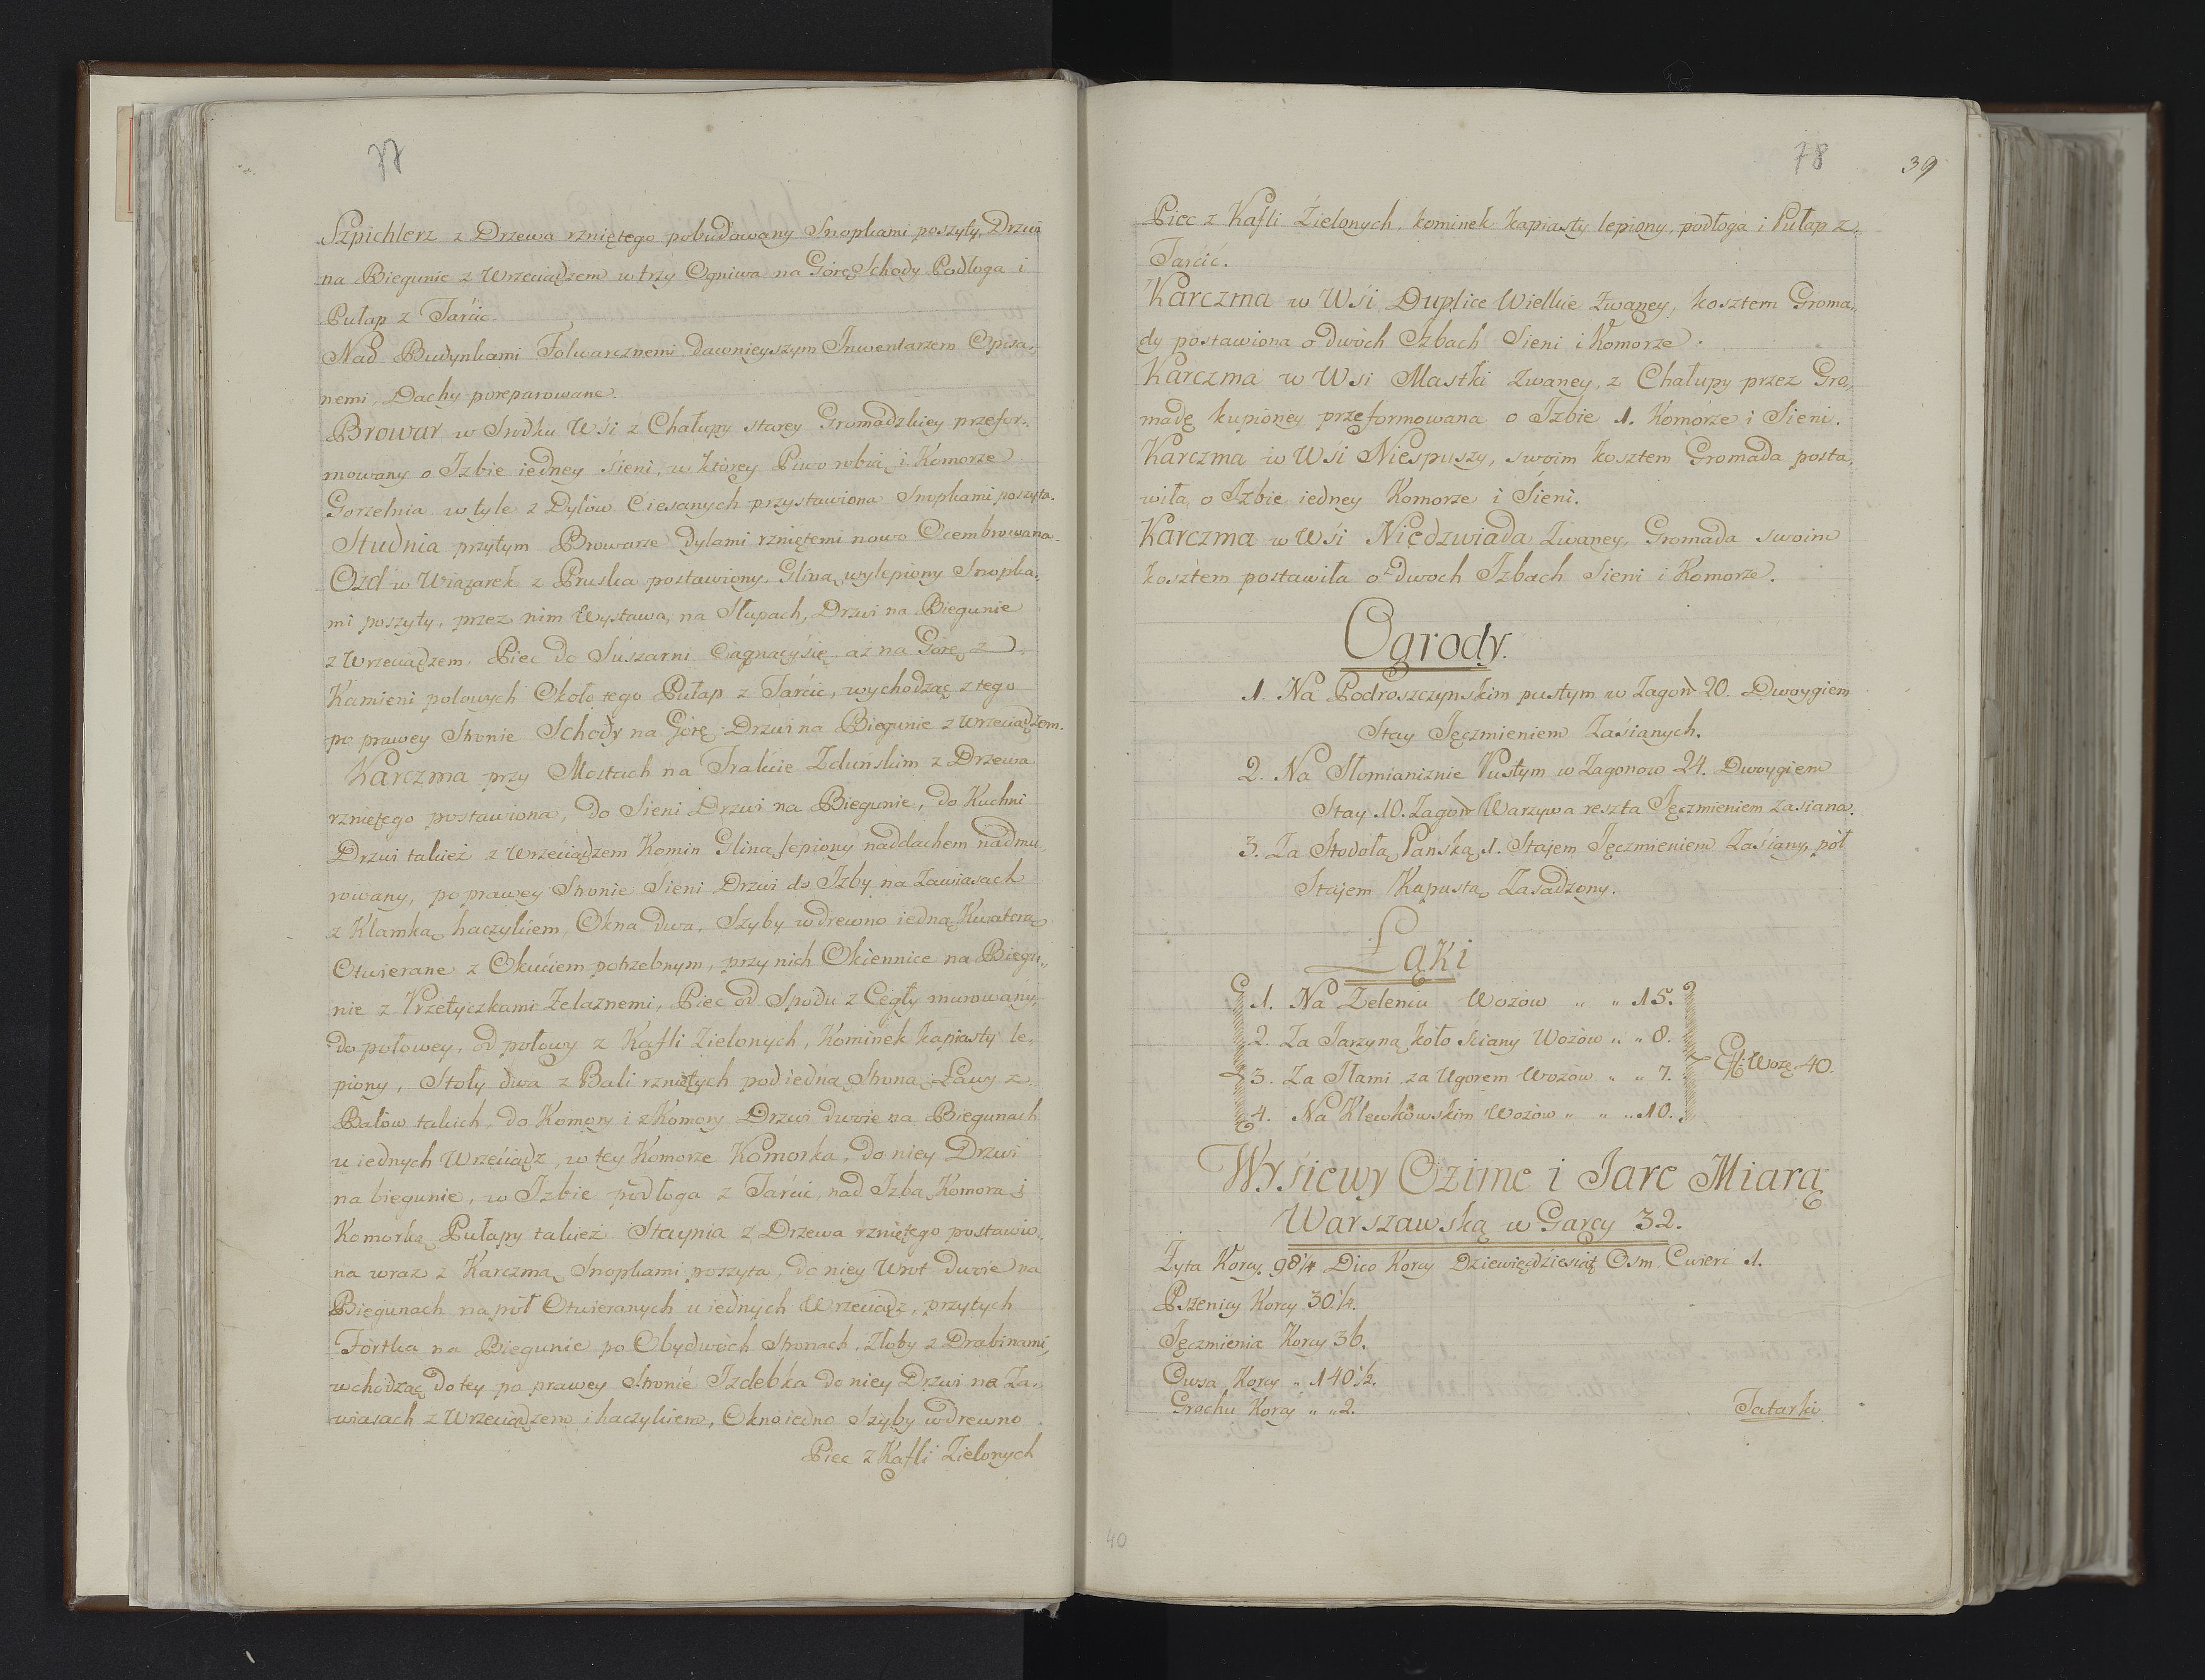 77
Szpichlerz z Drzewa rzniętego pobudowany Snopkami poszyty, Drzwi
na Biegunie z Wrzeciądzem w trzy Ogniwa na Górę Schody Podłoga i
Pułap z Tarcic.
Nad Budynkami Folwarcznemi dawnieyszym Inwentarzem Opisa„
nemi, Dachy poreparowane.
Browar w Srodku Wśi z Chałupy starey Gromadzkiey przefor„
mowany o Izbie iedney sieni, w ktorey Piwo robią i Komorze
Gorzelnia w tyle z Dylów Ciesanych przystawiona Snopkami poszyta.
Studnia przytym Browarze dylami rzniętemi nowo Ocembrowana.
Ozd w Wiązarek z Pruska postawiony, Gliną wylepiony Snopka„
mi poszyty, przez nim Wystawa, na Słupach, Drzwi na Biegunie
z Wrzeciądzem, Piec do Suszarni Ciągnący się aż na Górę z
Kamieni polowych Około tego Pułap z Tarcic, wychodząc z tego
po prawey Stronie Schody na Górę Drzwi na Biegunie z wrzeciądzem.
Karczma przy Mostach na Trakcie Zduńskim z Drzewa
rzniętego postawiona, do Sieni Drzwi na Biegunie, do Kuchni
Drzwi takież z Wrzeciądzem Komin Gliną lepiony naddachem nadmu„
rowany, po prawey Stronie Sieni Drzwi do Izby na Zawiasach
z Klamką haczykiem, Okna dwa, Szyby w drewno iedną Kwaterą
Otwierane z Okuciem potrzebnym, przy nich Okiennice na Biegu„
nie z Przetyczkami Żelaznemi, Piec od Spodu z Cegły murowany,
do połowey, od połowy z Kafli Zielonych, Kominek kapiasty le„
piony, Stoły dwa z Bali rzniętych pod iedną Stroną Ławy z
Balow takich, do Komory i z Komory Drzwi dwoie na Biegunach
u iednych Wrzeciądz, w tey Komorze Komorka, do niey Drzwi
na biegunie, w Izbie podłoga z Tarcic, nad Izbą Komorą i
Komorką Pułapy takież Staynia z Drzewa rzniętego postawio„
na wraz z Karczmą Snopkami poszyta, do niey Wrot dwoie na
Biegunach na pół Otwieranych u iednych Wrzeciądz, przytych
Fórtka na Biegunie po Obydwóch Stronach, Złoby z Drabinami,
wchodząc do tey po prawey Stronie Izdebka do niey Drzwi na Za„
wiasach z Wrzeciądzem i haczykiem, Okno iedno Szyby w drewno
Piec z Kafli Zielonych
78
39
Piec z Kafli Zielonych, kominek kapiasty lepiony, podłoga i Pułap z
Tarcic.
Karczma w Wśi Duplice Wielkie Zwaney, kosztem Groma„
dy postawiona o dwóch Izbach Sieni i Komorze.
Karczma w Wsi Mastki Zwaney, z Chałupy przez Gro„
madę kupioney przeformowana o Izbie 1. Komorze i Sieni.
Karczma w Wśi Niespuszy, swoim kosztem Gromada posta„
wiła, o Izbie iedney Komorze i Sieni.
Karczma w Wśi Niedzwiada Zwaney, Gromada swoim
kosztem postawiła o dwoch Izbach Sieni i Komorze.
Ogrody.
1. Na Podroszczynskim pustym w Zagon 20. Dwoygiem
Stay Jęczmieniem Zasianych.
2. Na Słomianiznie Pustym w Zagonow 24. Dwoygiem
Stay 10. Zagon Warzywa reszta Jęczmieniem zasiana.
3. Za Stodołą Pańską 1. Stajem Jęczmieniem Zasiany, pół
Stajem Kapustą Zasadzony.
Łąki
1. Na Zeleniu Wozow „ „ 15.
2. Za Jarzyną koło Sciany Wozów „ „ 8.
3. Za Iłami za Ugorem Wozow „ „ 7.
Wozę 40.
4. Na Klewkowskim Wozow „ „ „ 10.
Wysiewy Ozime i Jare Miarą
Warszawską w Garcy 32.
Żyta Korcy 98 1/4 Dico Korcy Dziewięćdziesiąt Osm Cwierć 1.
Pszenicy Korcy 30 1/4.
Jęczmienia Korcy 36.
Owsa Korcy „ 140 1/2.
Grochu Korcy „ „ 2.
Tatarki
40